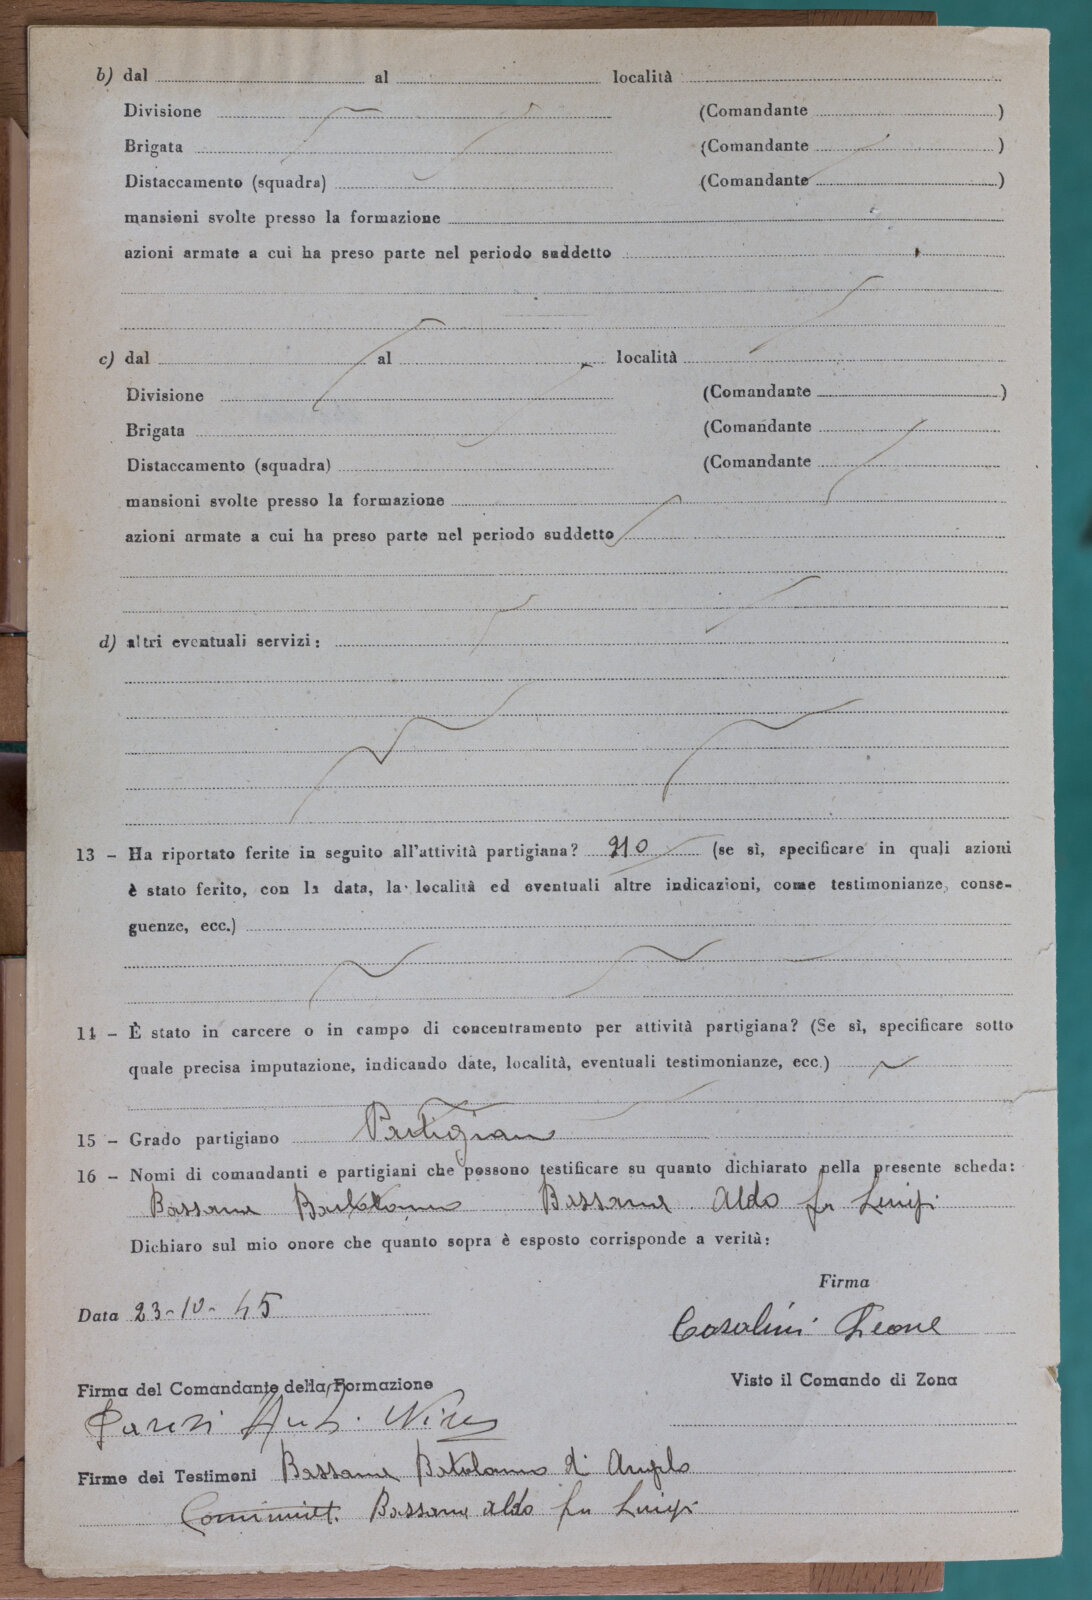 b) dal al località
Divisione (Comandante )
Brigata (Comandante )
Distaccamento (squadra) (Comandante )
mansioni svolte presso la formazione
azioni armate a cui ha preso parte nel periodo suddetto
c) dal al località
Divisione (Comandante )
Brigata (Comandante
Distaccamento (squadra) (Comandante
mansioni svolte presso la formazione
azioni armate a cui ha preso parte nel periodo suddetto
d) altri eventuali servizi :
13 – Ha riportato ferite in seguito all'attività partigiana? NO (se sì, specificare in quali azioni
è stato ferito, con la data, la località ed eventuali altre indicazioni, come testimonianze, conse-
guenze, ecc.)
14 – È stato in carcere o in campo di concentramento per attività partigiana? (Se sì, specificare sotto
quale precisa imputazione, indicando date, località, eventuali testimonianze, ecc.)
15 – Grado partigiano Partigiano
16 – Nomi di comandanti e partigiani che possono testificare su quanto dichiarato nella presente scheda:
Bassano Bartolomeo Bassano Aldo fu Luigi
Dichiaro sul mio onore che quanto sopra è esposto corrisponde a verità:
Firma
Data 23-10-45
Casalini Leone
Firma del Comandante della Formazione Visto il Comando di Zona
Firme dei Testimoni Bassano Bartolomeo di Angelo
Bassano Aldo fu Luigi